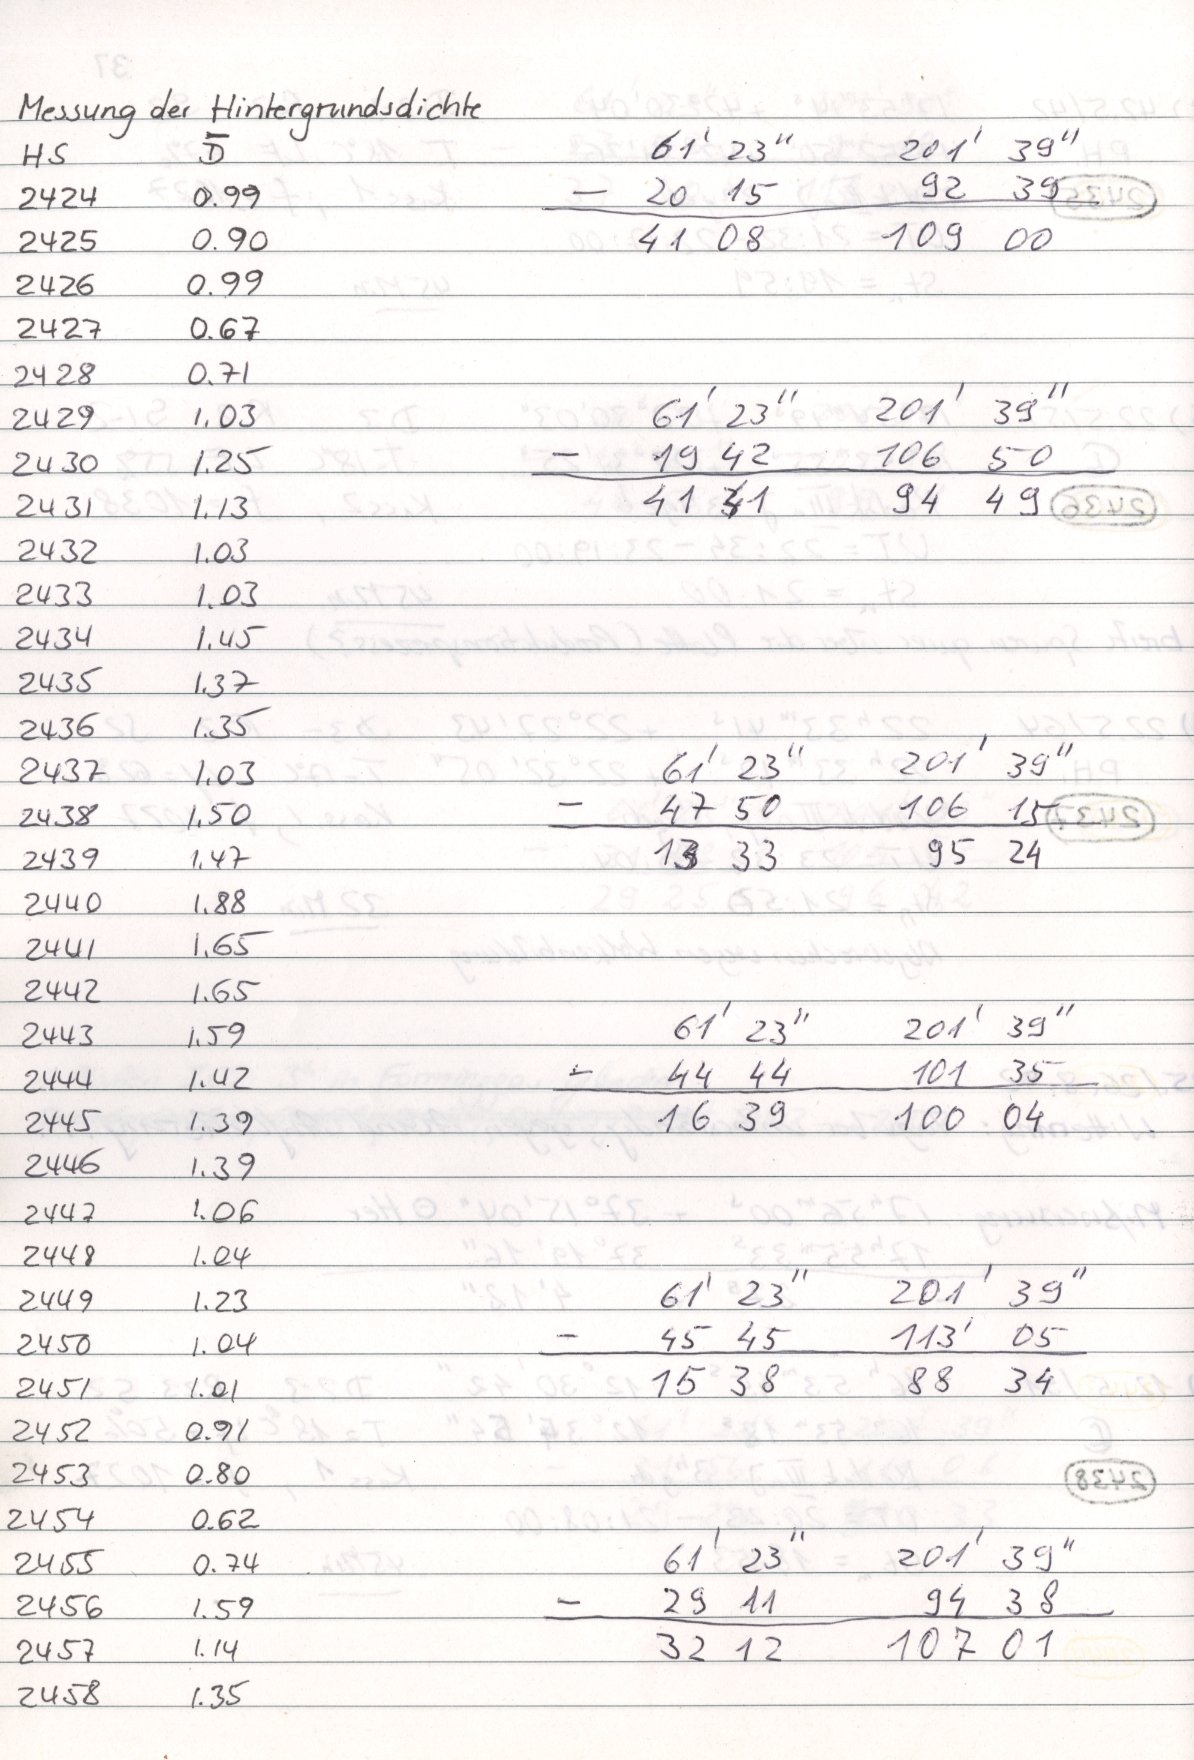 Messung der Hintergrundsdichte
HS D̅ 61' 23" 201' 39"
2424 0.99 – 20 15 92 39
2425 0.90 41 08 109 00
2426 0.99
2427 0.67
2428 0.71
2429 1.03 61' 23" 201' 39"
2430 1.25 – 19 42 106 50
2431 1.13 41 41 94 49
2432 1.03
2433 1.03
2434 1.45
2435 1.37
2436 1.35
2437 1.03 61' 23" 201' 39"
2438 1.50 – 47 50 106 15
2439 1.47 13 33 95 24
2440 1.88
2441 1.65
2442 1.65
2443 1.59 61' 23" 201' 39"
2444 1.42 – 44 44 101 35
2445 1.39 16 39 100 04
2446 1.39
2447 1.06
2448 1.04
2449 1.23 61' 23" 201' 39"
2450 1.04 – 45 45 113' 05
2451 1.01 15 38 88 34
2452 0.91
2453 0.80
2454 0.62
2455 0.74 61' 23" 201' 39"
2456 1.59 – 29 11 94 38
2457 1.14 32 12 107 01
2458 1.35